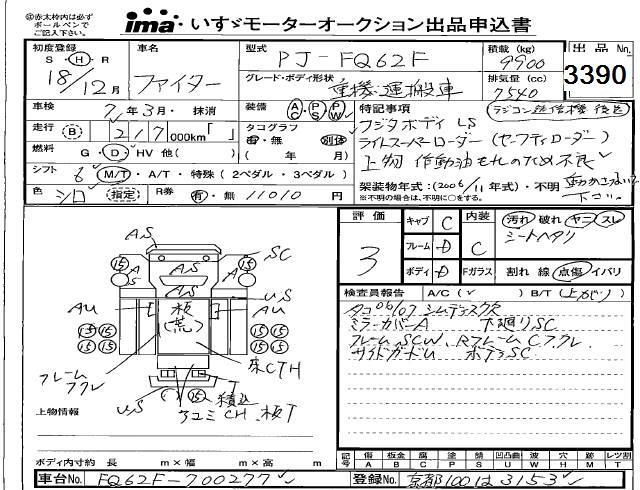 ◎赤太枠内は必ず
ボールペンで
ご記入下さい。
ima いすゞモーターオークション出品申込書
初度登録
S・H・R
18/12月
車名
ファイター
型式
PJ-FQ62F
積載 (kg)
9900
出品No
3390
グレード・ボディ形状
重機運搬車
排気量 (cc)
7540
車検
7年3月・抹消
装備
AC・PS・PW
特記事項
ラジコン送信機後送
走行 (B)
217
000km「 」
タコグラフ
有・無 別体
( 年 月)
フジタボディ LS
ライトスーパーローダー (セーフティローダー)
燃料
G・D・HV 他( )
上物作動油もれのため不良
シフト
6 M/T・A/T・特殊 (2ペダル・3ペダル)
架装物年式:(2006/11年式)・不明
※不明の場合は、不明に○をする。
動かさないで
下さい
色
シロ
指定
R券
有・無
11010円
評価
3
キャブ C
フレーム D
ボディ D
内装
C
Fガラス
汚れ 破れ ヤニ スレ
シートヘタリ
割れ 線 点傷 イバリ
検査員報告 A/C( ✓ ) B/T(上がり)
タコ06/07 シムテックス
ミラーカバーA 下廻りSC
フレームSCW、Rフレーム Cフクレ
サイドガードU ボデーSC
AS
AS
AS
SC
A
A
US
AU
AU
板
(荒)
15
15
15 15
15 15
15 15
15 15
床CTH
フレーム
フクレ
T
積込
US
アユミCH、板T
上物情報
ボディ内寸約 長 m×幅 m×高 m
記号
傷 板金 腐 塗 錆 凹凸曲 波 穴 跡 レツ割
A B C P S U W H M T
車台No. FQ62F-700277
登録No. 京都100は3153